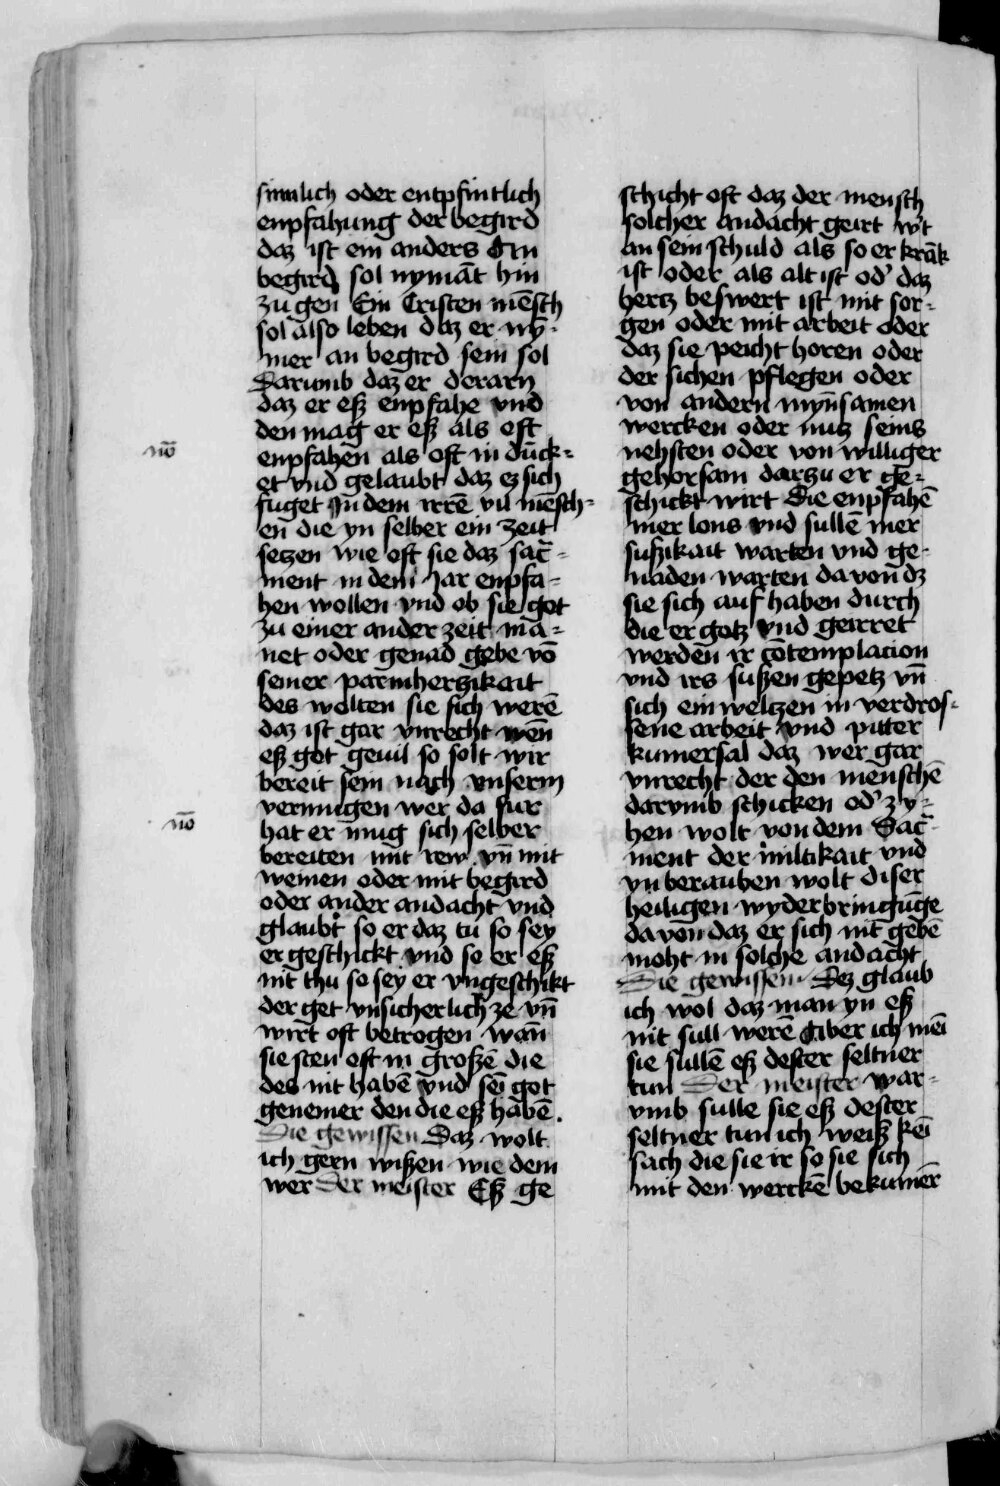 sinnlich oder entpfintlich
enpfahung der begird
daz ist ein anders An
begird sol nymāt hin
zu gen Ein Cristen mēsch
sol also leben daz er ny-
mer an begird sein sol
Darumb daz er derarn
daz er eß enpfahe vnd
den mag er eß als oft
enpfahen als oft in dūck=
et vnd gelaubt daz ez sich
fuget In dem irrē vil mēsch-
en die yn selber ein zeit
setzen wie oft sie daz sac̄=
ment in dem Jar enpfa=
hen wollen vnd ob sie got
zu einer ander zeit ma=
net oder genad gebe vō
seiner parmhertzikait
des wolten sie sich werē
daz ist gar vnrecht wēn
eß got gevil so solt wir
bereit sein nach vnserm
vermugen wer da fur
hat er mug sich selber
bereiten mit rew vn̄ mit
weinen oder mit begird
oder ander andacht vnd
glaubt so er daz tu so sey
er geschickt vnd so er eß
nit thu so sey er vngeschikt
der get vnsicherlichze vn̄
wirt oft betrogen wān
sie sten oft in großē die
des nit habē vnd sēi got
genemer den die eß habē.
Die gewissen Daz wolt
ich gern wißen wie dem
wer Der meister Eß ge
nō
nō
schicht oft daz der mensch
solcher andacht geirt w't
an sein schuld als so er krāk
ist oder als alt ist od' daz
hertz beswert ist mit sor-
gen oder mit arbeit oder
daz sie peicht horen oder
der sichen pflegen oder
von andern myn̄samen
wercken oder nutz seins
nehsten oder von williger
gehorsam darzu er ge=
schickt wirt Die enpfahē
mer lons vnd sullē mer
sußikait warten vnd ge-
naden warten da von dz
sie sich auf haben durch
die er gotz vnd geirret
werden ir cōtemplacion
vnd irs sußen gepetz vn̄
sich ein weltzen in verdros-
sene arbeit vnd pitter
kumersal daz wer gar
vnrecht der den menschē
darvmb schicken od' zy-
hen wolt von dem Sac̄-
ment der miltikait vnd
yn berauben wolt diser
heiligen wyderbringūge
da von daz er sich nit gebē
moht in solche andacht
Die gewissen Dez glaub
ich wol daz man yn eß
nit sull werē Aber ich mēi
sie sullē eß dester seltner
tun Der meister War-
vmb sulle sie eß dester
seltner tun ich weiß kēi
sach die sie ir so sie sich
mit den werckē bekumēr